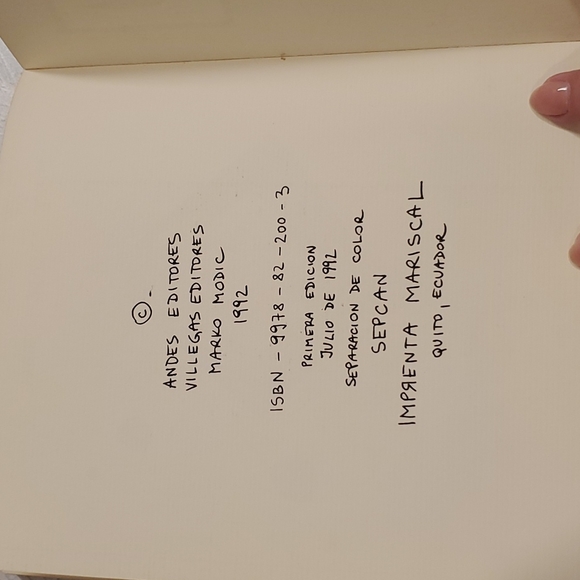 ©.
ANDES EDITORES
VILLEGAS EDITORES
MARKO MODIC
1992
ISBN - 9978 - 82 - 200 - 3
PRIMERA EDICION
JULIO DE 1992
SEPARACION DE COLOR
SEPCAN
IMPRENTA MARISCAL
QUITO, ECUADOR